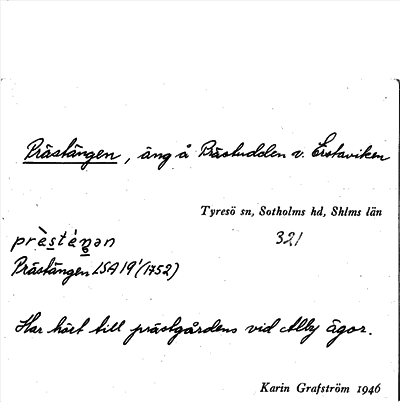 Prästängen, äng å Prästudden v. Erstaviken
Tyresö sn, Sotholms hd, Shlms län
321
prèstéŋən
Prästängen LSA 19¹ (1752)
Har hört till prästgårdens vid Alby ägor.
Karin Grafström 1946